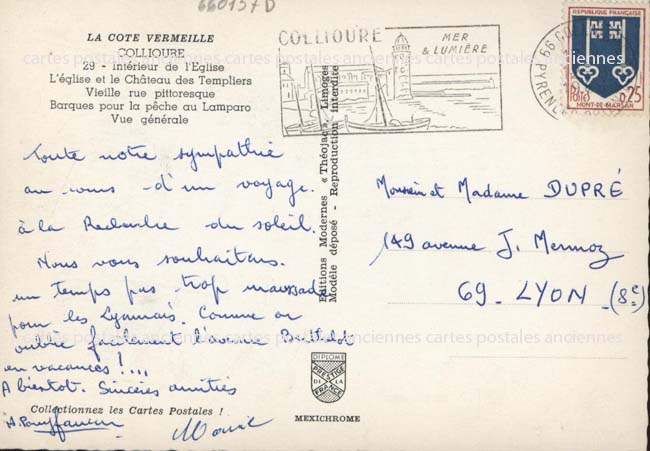 660157D
LA COTE VERMEILLE
COLLIOURE
23 - intérieur de l'Eglise
L'église et le Château des Templiers
Vieille rue pittoresque
Barques pour la pêche au Lamparo
Vue générale
COLLIOURE
MER
& LUMIÈRE
REPUBLIQUE FRANÇAISE
POSTES 0,25
MONT-DE-MARSAN
Toute notre sympathie
au cours d'un voyage
à la Recherche du soleil.
Nous vous souhaitons
un temps pas trop maussade
pour les Lyonnais. Comme on
oublie facilement l'avenue Berthelot
en vacances !...
A bientôt. Sincères amitiés
Collectionnez les Cartes Postales !
Editions Modernes « Théojac », Limoges
Modèle déposé - Reproduction interdite
DIPLOME
PRESTIGE
DE LA
FRANCE
MEXICHROME
Monsieur et Madame DUPRÉ
149 avenue J. Mermoz
69 - LYON - (8e)
cartes postales anciennes cartes postales anciennes cartes postales anciennes
cartes postales anciennes cartes postales anciennes cartes postales anciennes